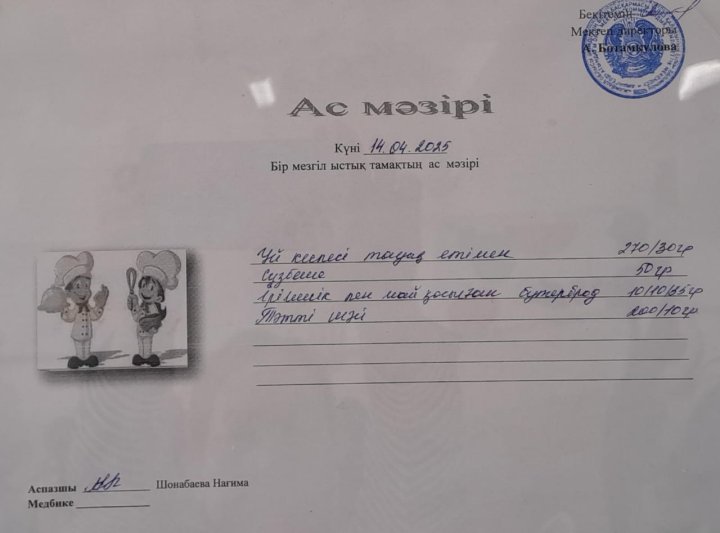 Бекітемін
Мектеп директоры
А. Ботамқулова
Ас мәзірі
Күні 14.04.2025
Бір мезгіл ыстық тамақтың ас мәзірі
Үй кеспесі тауық етімен 270/30гр
Сүзбеше 50гр
Ірімшік пен май қосылған бутерброд 10/10/35гр
Тәтті шәй 200/10гр
Аспазшы Шонабаева Нағима
Медбике